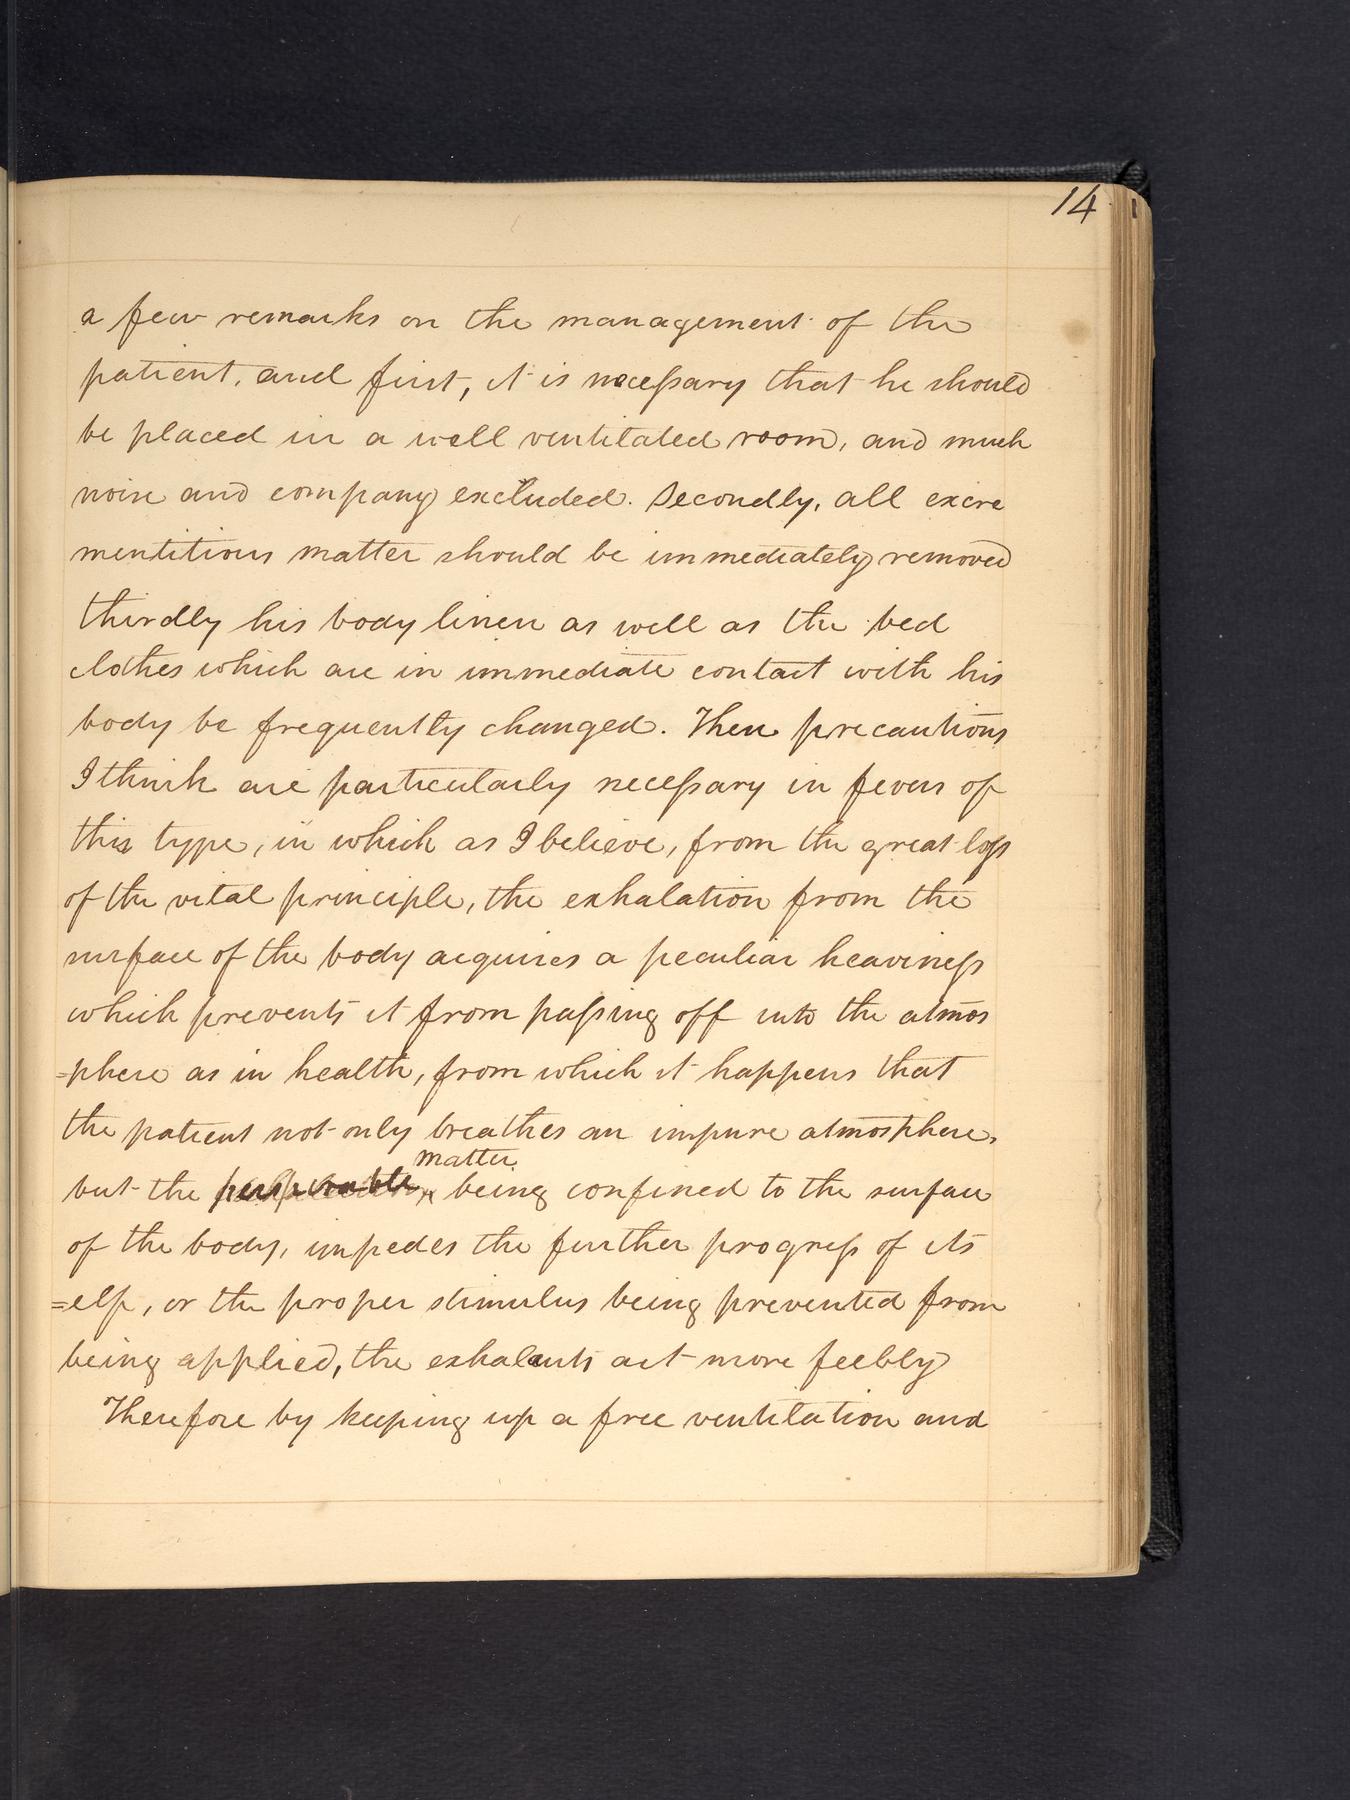 14
a few remarks on the management of the
patient, and first, it is necessary that he should
be placed in a well ventilated room, and much
noise and company excluded. Secondly, all excre
mentitious matter should be immediately removed
thirdly his body linen as well as the bed
clothes which are in immediate contact with his
body be frequently changed. These precautions
I think are particularly necessary in fevers of
this type, in which as I believe, from the great loss
of the vital principle, the exhalation from the
surface of the body acquires a peculiar heaviness
which prevents it from passing off into the atmos
=phere as in health, from which it happens that
the patient not only breathes an impure atmosphere,
matter
but the perspirable being confined to the surface
of the body, impedes the further progress of its
=elf, or the proper stimulus being prevented from
being applied, the exhalants act more feebly
Therefore by keeping up a free ventilation and